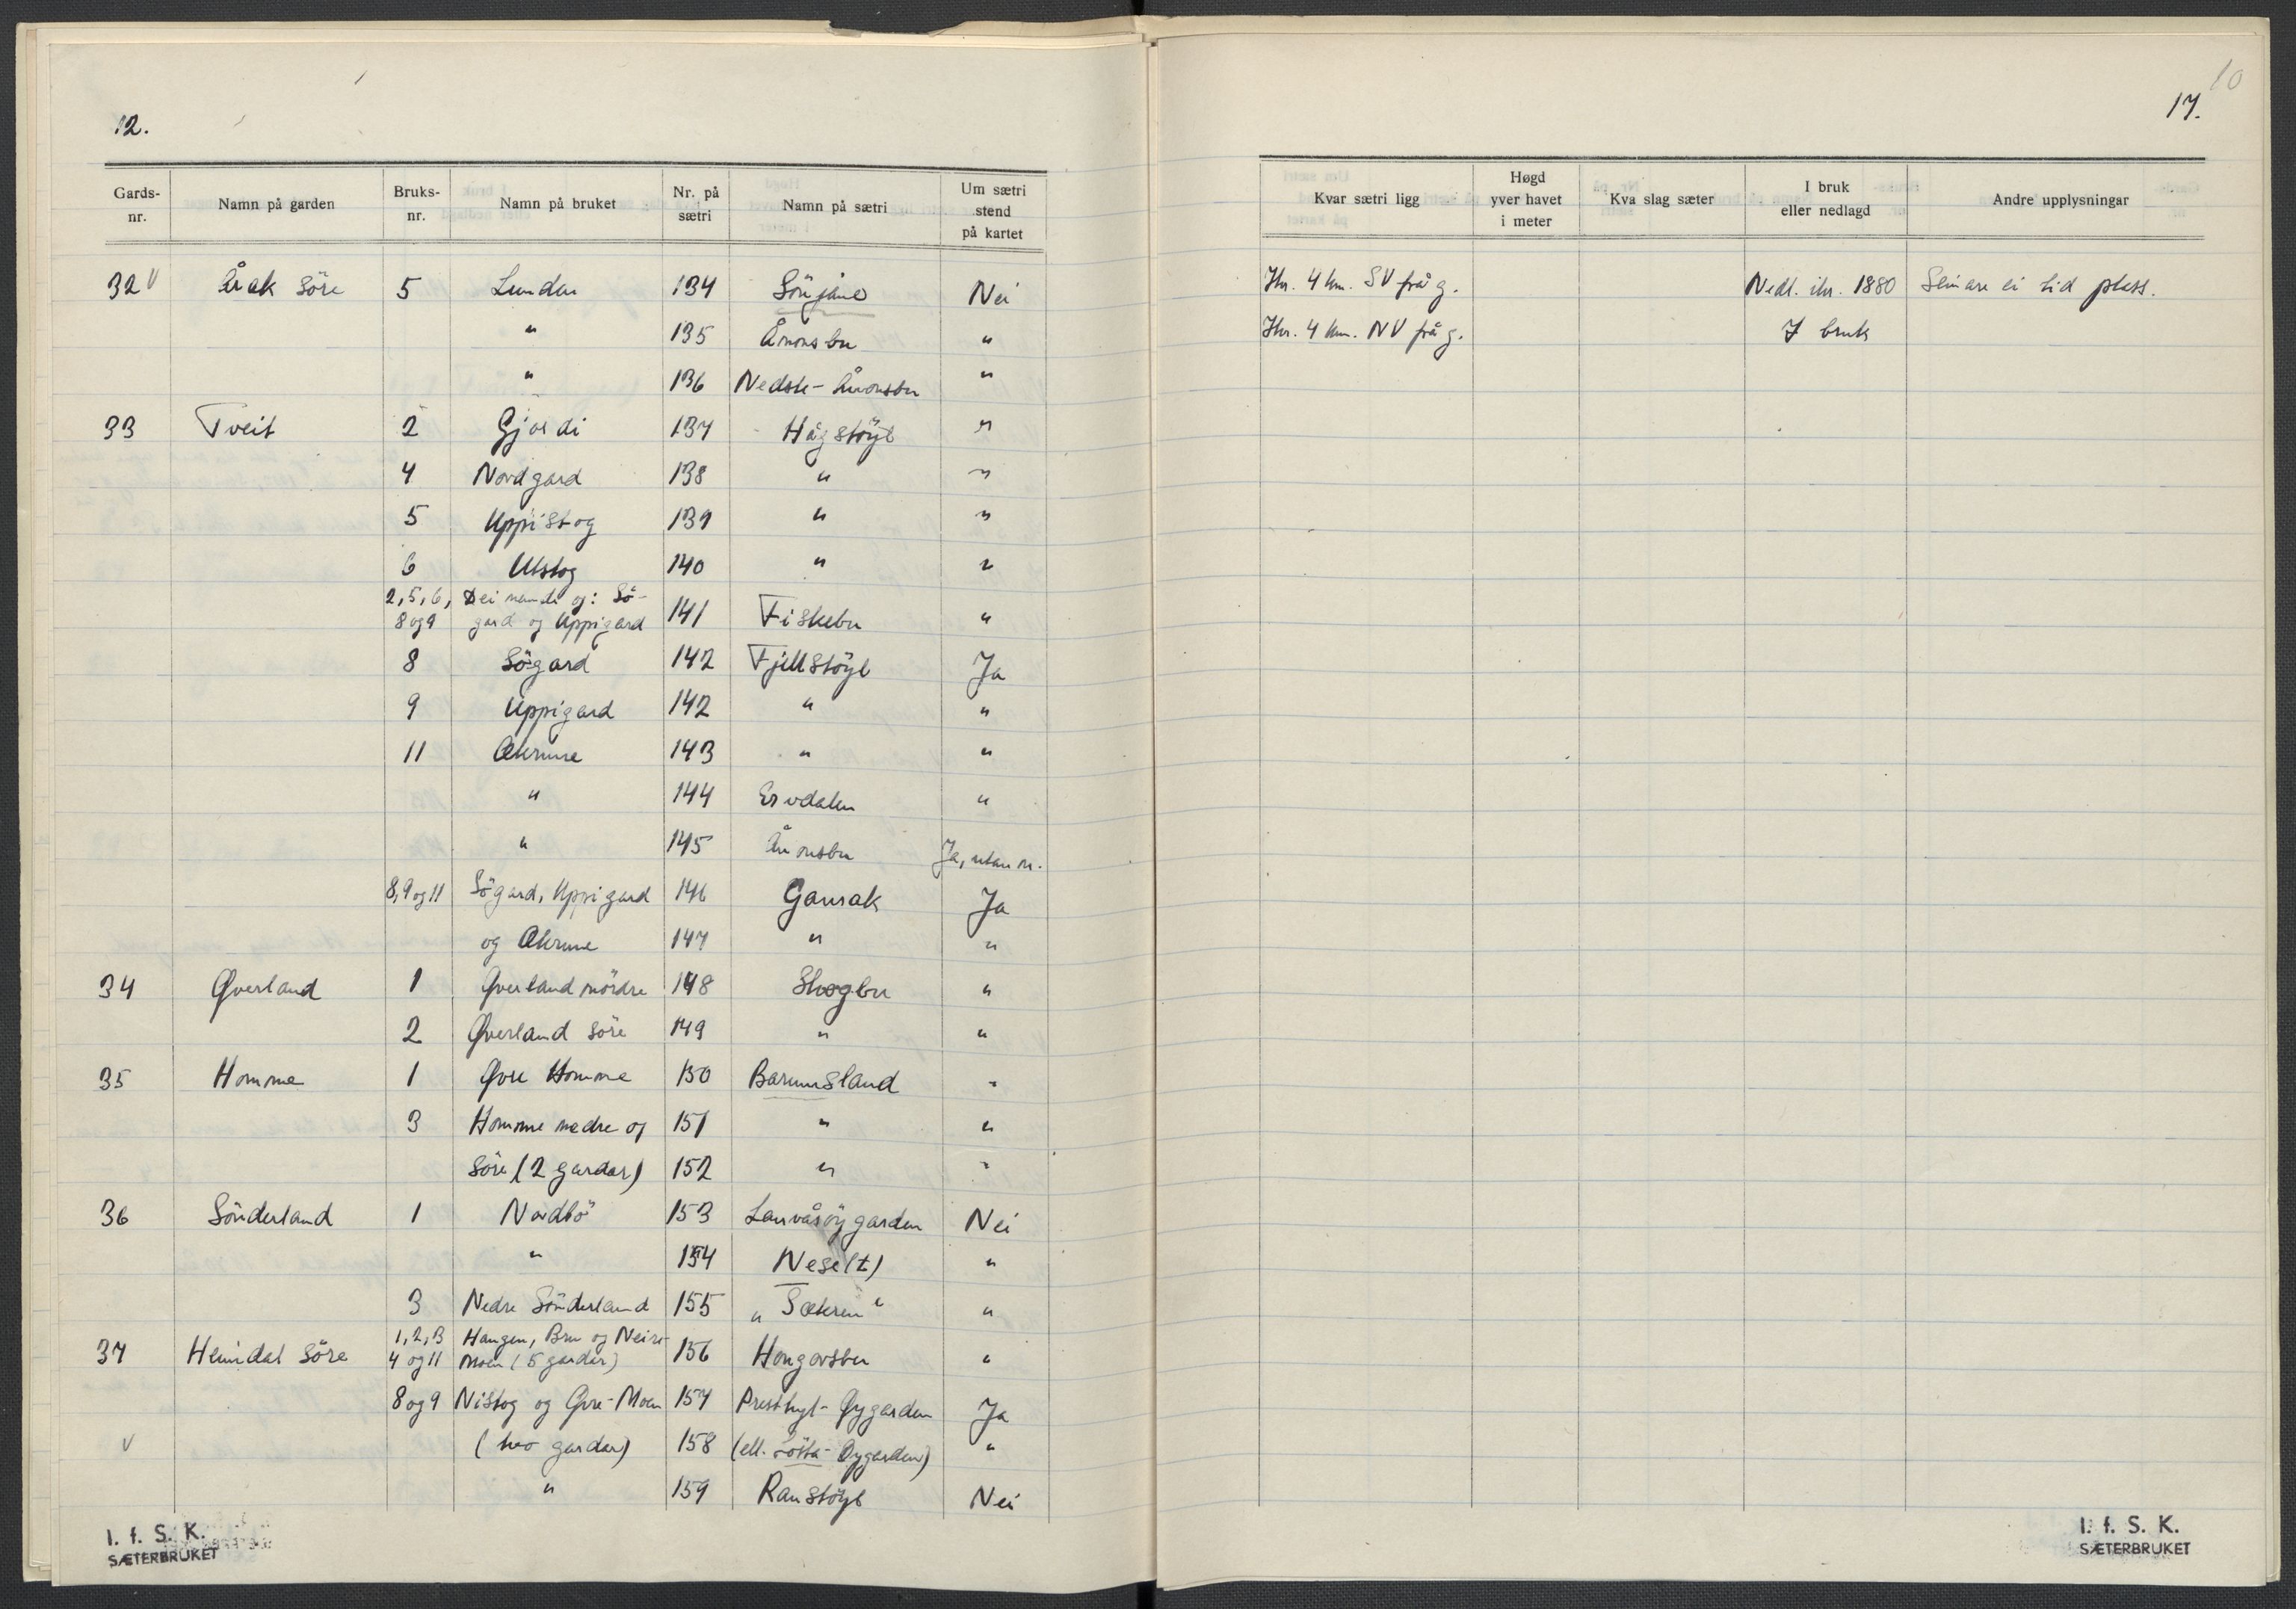 12.
Gards-nr. Namn på garden Bruks-nr. Namn på bruket Nr. på sætri Namn på sætri Um sætri stend på kartet
32 V Årak Söre 5 Lunden 134 Nei
" 135 Åmonsbu "
" 136 Nedste-Åmonsbu "
33 Tveit 2 Gjordi 137 Hågstöyl "
4 Nordgard 138 " "
5 Uppistog 139 " "
6 Utstog 140 " "
2, 5, 6, Dei nemde og: Sö-
8 og 9 gard og Uppigard 141 Fiskebu "
8 Sögard 142 Fjellstöyl Ja
9 Uppigard 142 " "
11 Økrune 143 " "
" 144 Ervdalen "
" 145 Åmonsbu Ja, utan n.
8, 9 og 11 Sögard, Uppigard 146 Gausak Ja
og Økrune 147 " "
34 Øverland 1 Øverland nördre 148 Skogbu "
2 Øverland söre 149 " "
35 Homme 1 Øvre Homme 150 Barunsland "
3 Homme nedre og 151 " "
söre (2 gardar) 152 " "
36 Sönderland 1 Nordbö 153 Lauvåsöygarden Nei
" 154 Nese(t) "
3 Nedre Sönderland 155 „Sæteren“ "
1, 2, 3 Haugen, Bru og Neire-
37 Heimdal Söre 4 og 11 Moen (5 gardar) 156 Hongorsbu "
8 og 9 Nistog og Øvre-Moen 157 Presthyl-Øygarden Ja
V (tvo gardar) 158 (ell. Øygarden) "
" 159 Ranstöyl Nei
I. f. S. K.
SÆTERBRUKET
10
17.
Kvar sætri ligg Høgd yver havet i meter Kva slag sæter I bruk eller nedlagd Andre upplysningar
Ikr. 4 km. SV frå g. Nedl. ikr. 1880 Seinare ei tid plass.
Ikr. 4 km. NV frå g. I bruk
I. f. S. K.
SÆTERBRUKET